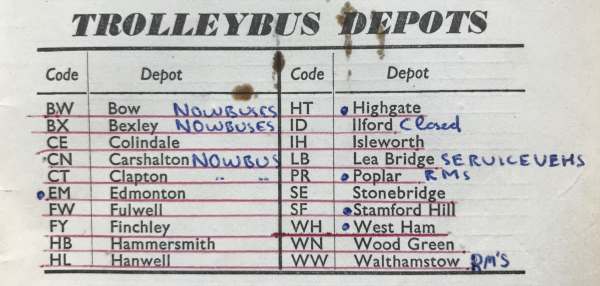 TROLLEYBUS DEPOTS
Code Depot Code Depot
BW Bow NOWBUSES HT Highgate
BX Bexley NOWBUSES ID Ilford Closed
CE Colindale IH Isleworth
CN Carshalton NOWBUS LB Lea Bridge SERVICEVEHS
CT Clapton " " PR Poplar RMs
EM Edmonton SE Stonebridge
FW Fulwell SF Stamford Hill
FY Finchley WH West Ham
HB Hammersmith WN Wood Green
HL Hanwell WW Walthamstow RM'S